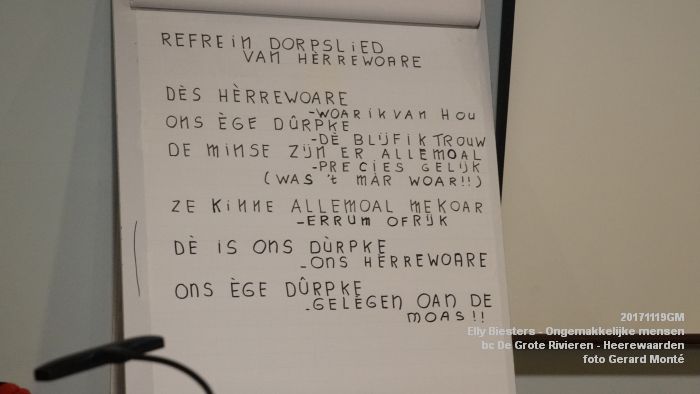 REFREIN DORPSLIED
VAN HÈRREWOARE
DÈS HÈRREWOARE
-WOAR IK VAN HOU
ONS ÈGE DÛRPKE
-DÈ BLIJF IK TROUW
DE MINSE ZIJN ER ALLEMOAL
-PRECIES GELIJK
(WAS 't MÀR WOAR!!)
ZE KINNE ALLEMOAL MEKOAR
-ERRUM OF RIJK
DÈ IS ONS DÙRPKE
-ONS HÈRREWOARE
ONS ÈGE DÛRPKE
-GELÈGEN OAN DE
MOAS!!
20171119GM
Elly Biesters - Ongemakkelijke mensen
bc De Grote Rivieren - Heerewaarden
foto Gerard Monté